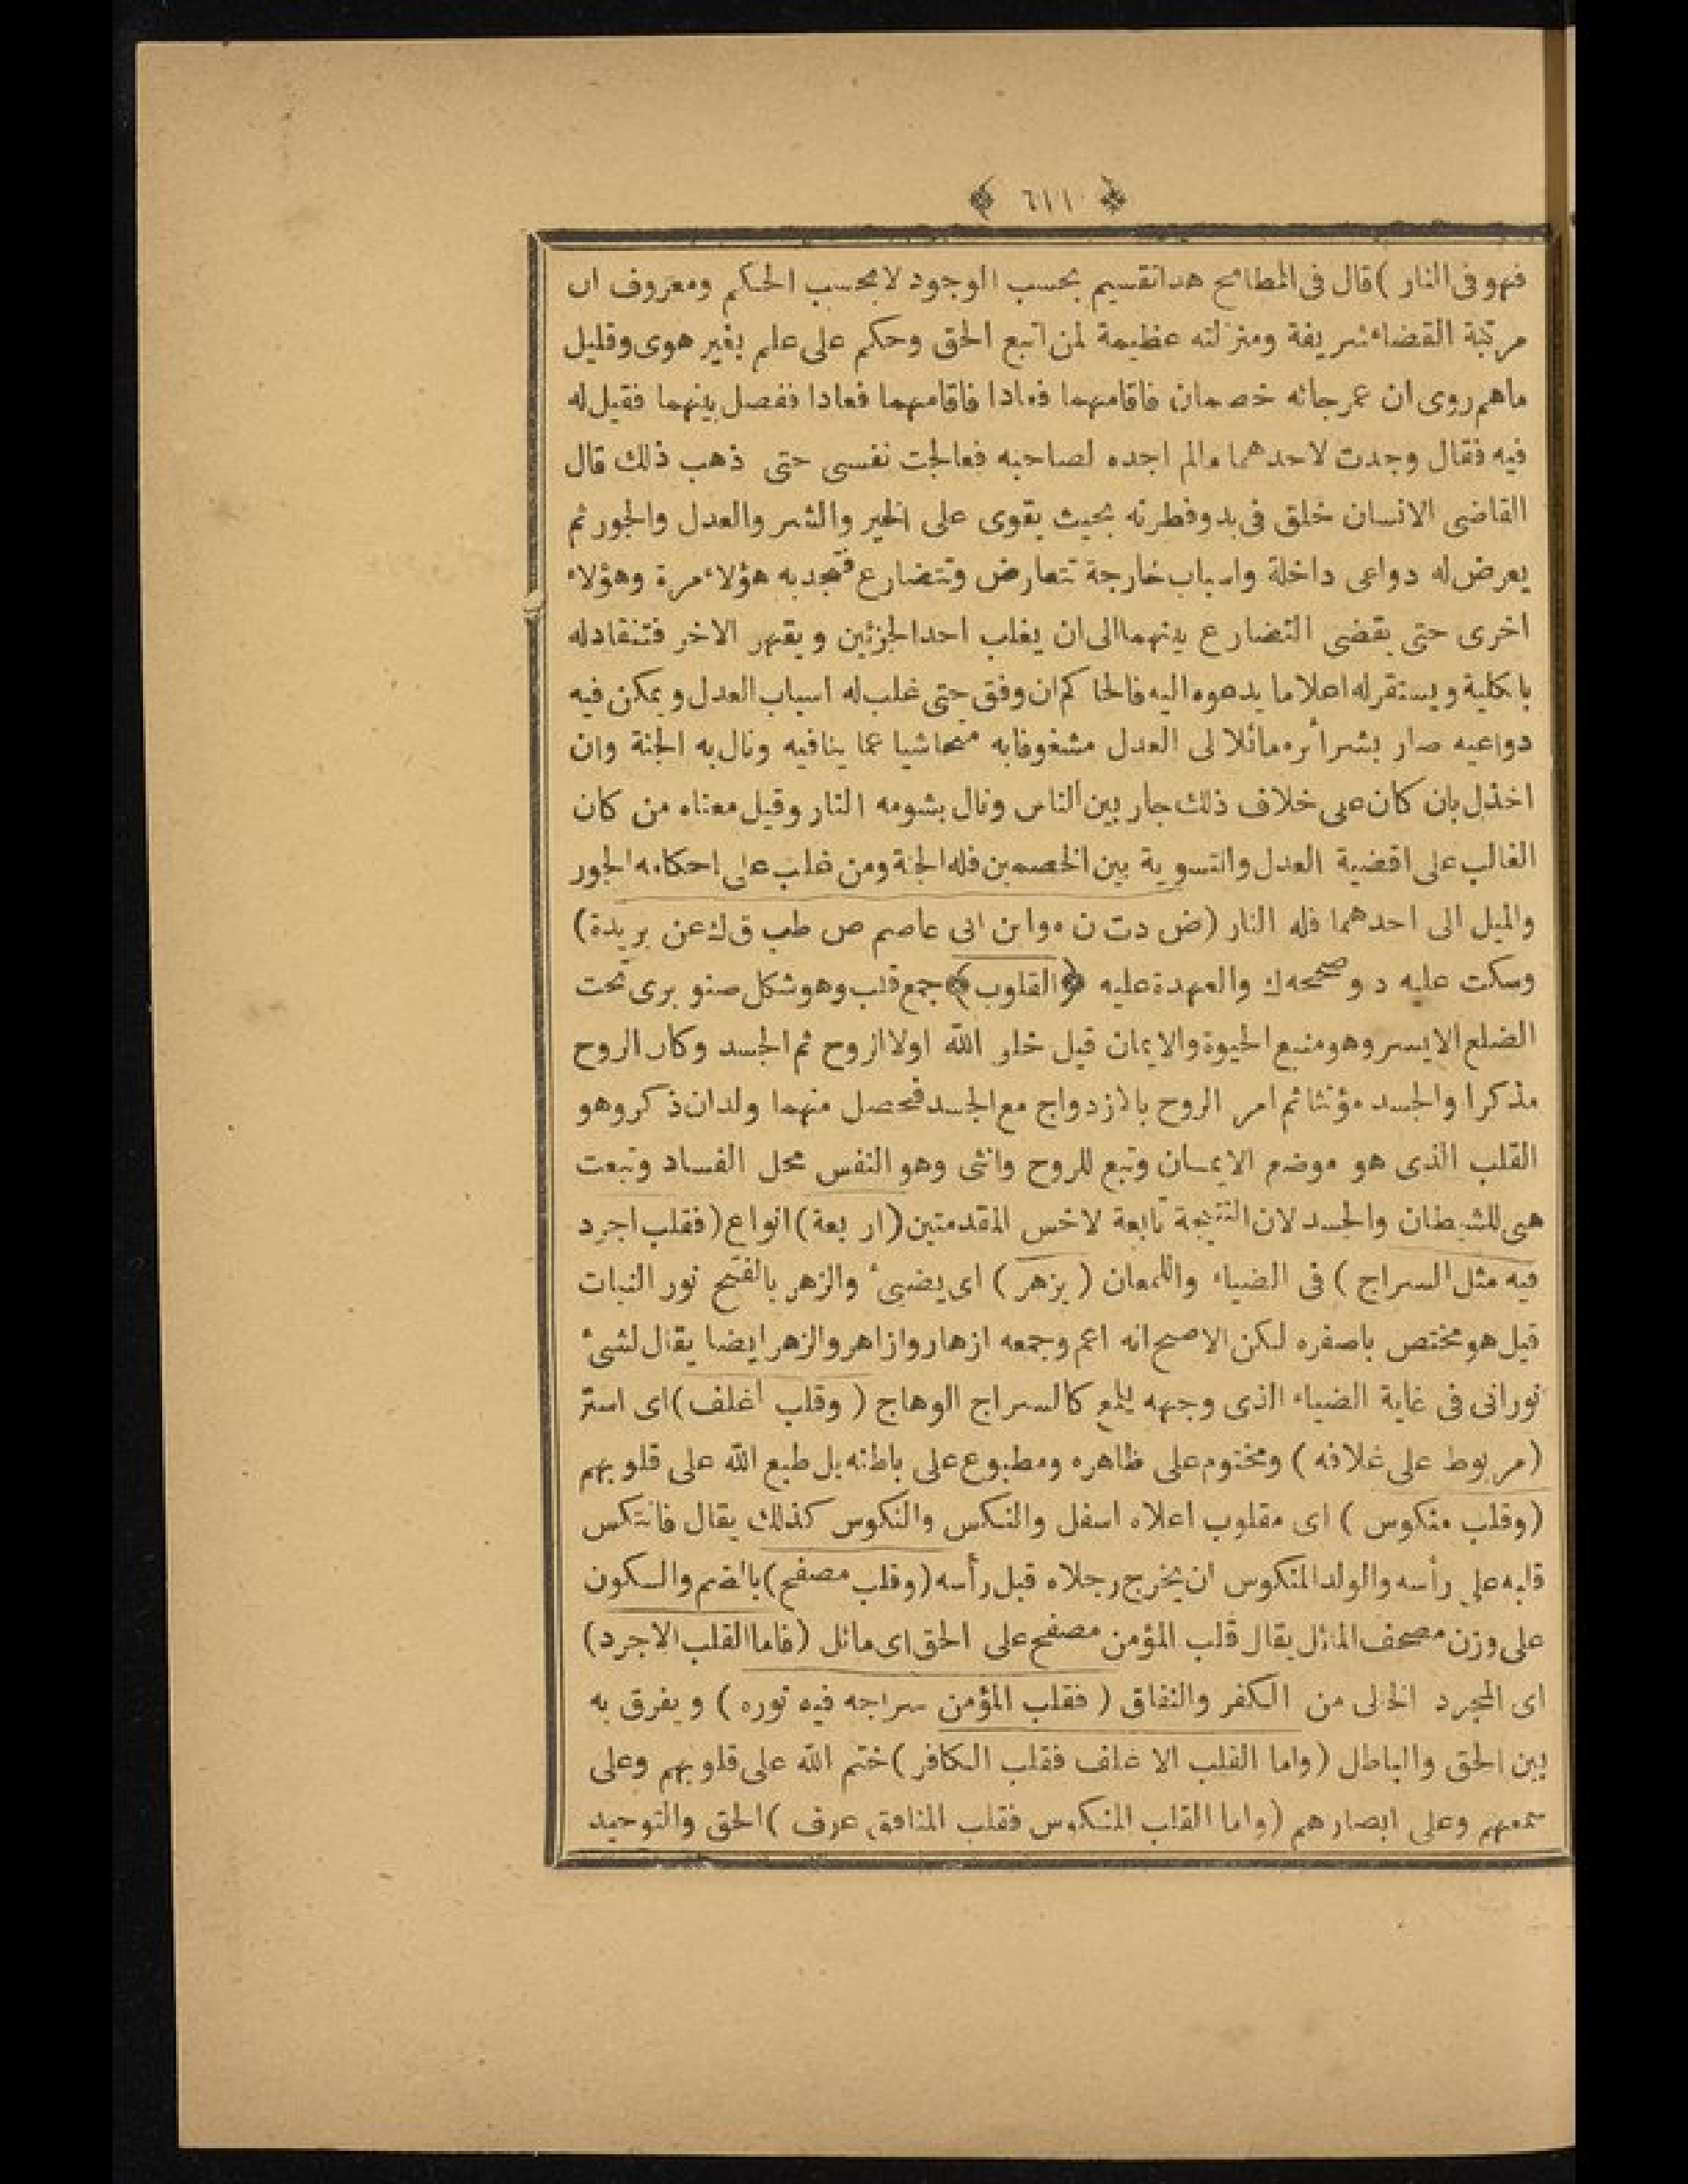 ﴿ ٦١١ ﴾
فهو فى النار ) قال فى المطامح هذا تقسيم بحسب الوجود لا بحسب الحكم ومعروف ان
مرتبة القضاء شريفة ومنزلته عظيمة لمن اتبع الحق وحكم على علم بغير هوى وقليل
ماهم روى ان عمر جائه خصمان فاقامهما فعادا فاقامهما فعادا ففصل بينهما فقيل له
فيه فقال وجدت لاحدهما مالم اجده لصاحبه فعالجت نفسى حتى ذهب ذلك قال
القاضى الانسان خلق فى بدو فطرته بحيث يقوى على الخير والشر والعدل والجور ثم
يعرض له دواعى داخلة واسباب خارجة تتعارض وتتضارع فتجذبه هؤلاء مرة وهؤلاء
اخرى حتى يقضى التضارع بينهما الى ان يغلب احد الجزئين و يقهر الاخر فتنقاد له
بالكلية و يستقر له اعلاما يدعوه اليه فالحاكم ان وفق حتى غلب له اسباب العدل و يمكن فيه
دواعيه صار بشراثره مائلا لى العدل مشغوفا به متحاشيا عما ينافيه ونال به الجنة وان
اخذل بان كان على خلاف ذلك جار بين الناس ونال بشومه النار وقيل معناه من كان
الغالب على اقضية العدل والتسوية بين الخصمين فله الجنة ومن غلب على احكامه الجور
والميل الى احدهما فله النار (ض دت ن ه وابن ابى عاصم ص طب ق ك عن بريدة)
وسكت عليه د و صححه ك والعهدة عليه ﴿القلوب﴾ جمع قلب وهو شكل صنو برى تحت
الضلع الايسر وهو منبع الحيوة والايمان قيل خلق الله اولا الروح ثم الجسد وكان الروح
مذكرا والجسد مؤنثا ثم امر الروح بالازدواج مع الجسد فحصل منهما ولدان ذكر وهو
القلب الذى هو موضع الايمان وتبع للروح وانثى وهو النفس محل الفساد وتبعت
هى للشيطان والجسد لان النتيجة تابعة لاخس المقدمتين (اربعة) انواع (فقلب اجرد
فيه مثل السراج ) فى الضياء واللمعان ( يزهر ) اى يضيئ والزهر بالفتح نور النبات
قيل هو مختص باصفره لكن الاصح انه اعم وجمعه ازهار وازاهر والزهر ايضا يقال لشئ
نورانى فى غاية الضياء الذى وجهه يلمع كالسراج الوهاج ( وقلب اغلف) اى استر
(مربوط على غلافه ) ومختوم على ظاهره ومطبوع على باطنه بل طبع الله على قلوبهم
(وقلب منكوس ) اى مقلوب اعلاه اسفل والنكس والنكوس كذلك يقال فانتكس
قلبه على رأسه والولد المنكوس ان يخرج رجلاه قبل رأسه (وقلب مصفح) بالضم والسكون
على وزن مصحف المائل يقال قلب المؤمن مصفح على الحق اى مائل (فاما القلب الاجرد)
اى المجرد الخالى من الكفر والنفاق ( فقلب المؤمن سراجه فيه نوره ) و يفرق به
بين الحق والباطل (واما القلب الاغلف فقلب الكافر) ختم الله على قلوبهم وعلى
سمعهم وعلى ابصارهم (واما القلب المنكوس فقلب المنافق عرف ) الحق والتوحيد